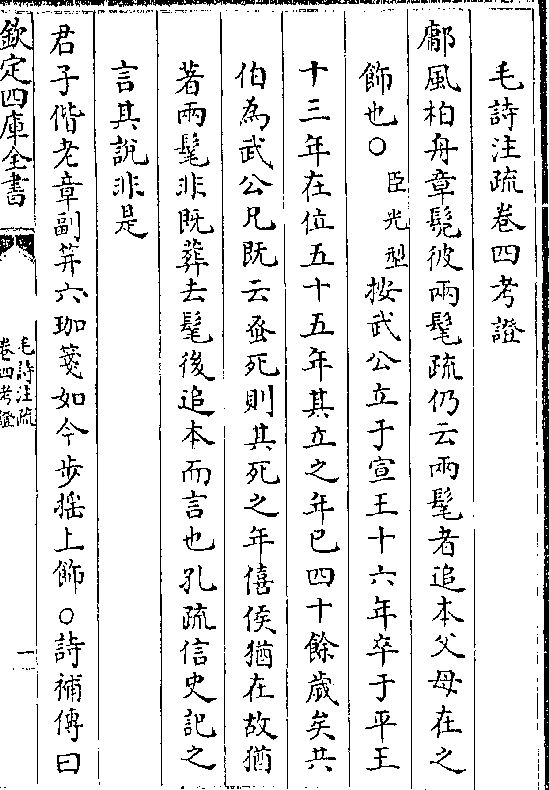 毛詩注疏卷四考證
鄘風柏舟章髧彼兩髦疏仍云兩髦者追本父母在之
飾也○臣光型按武公立于宣王十六年卒于平王
十三年在位五十五年其立之年已四十餘歲矣共
伯為武公兄既云蚤死則其死之年僖侯猶在故猶
著兩髦非既葬去髦後追本而言也孔疏信史記之
言其說非是
君子偕老章副笄六珈箋如今步揺上飾○詩補傳曰
欽定四庫全書
毛詩注疏
卷四考證
一